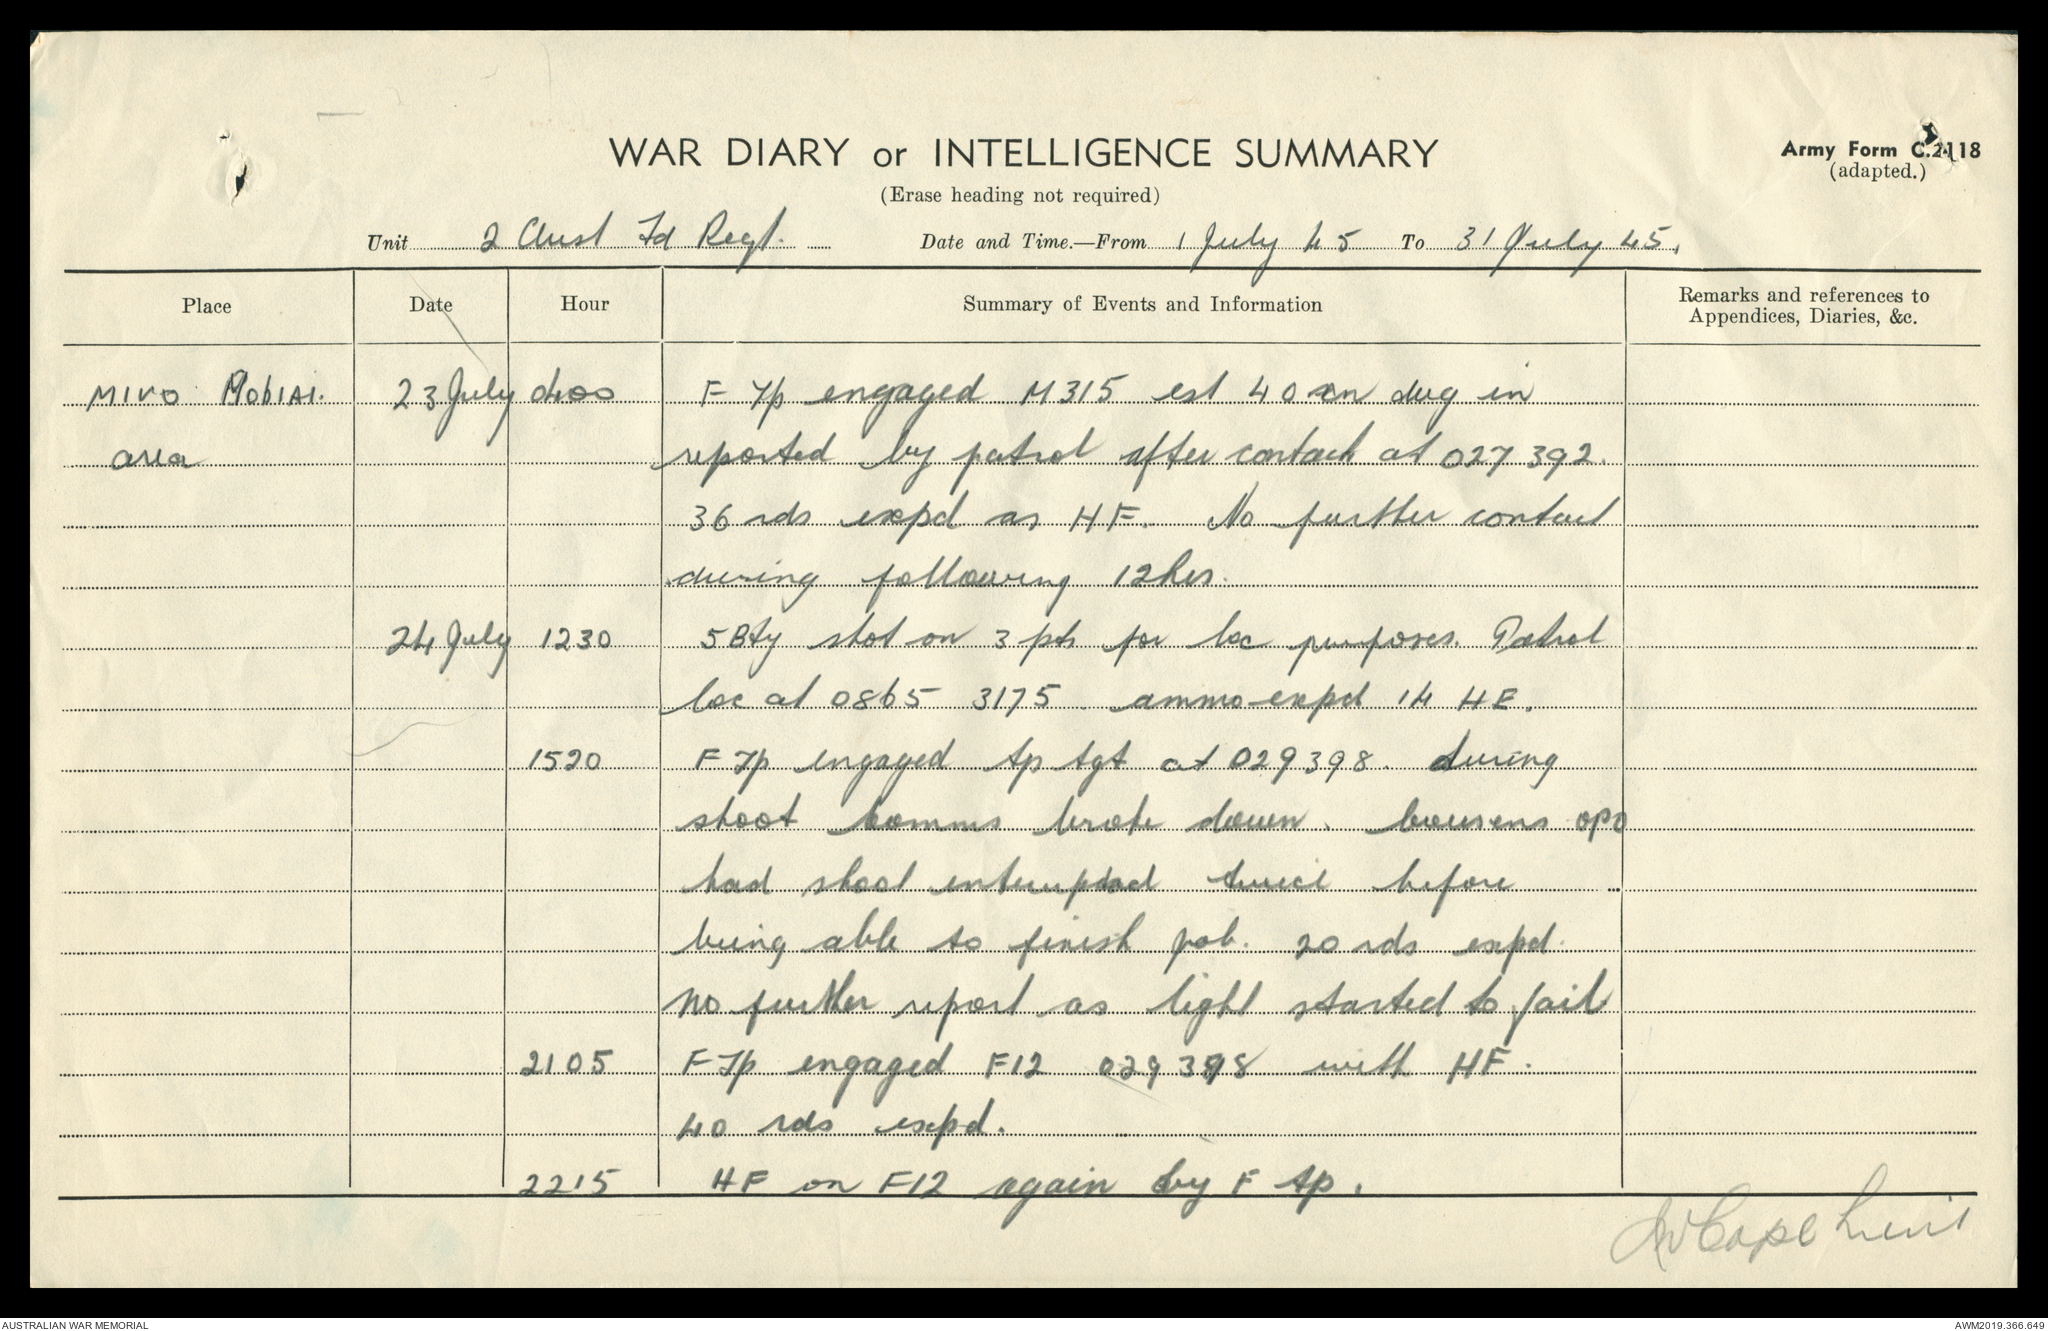 WAR DIARY or INTELLIGENCE SUMMARY
Army Form C.2118
(adapted.)
(Erase heading not required)
Unit 2 Aust Fd Regt. Date and Time.—From 1 July 45 To 31 July 45.
Place Date Hour Summary of Events and Information Remarks and references to
Appendices, Diaries, &c.
MIVO MOBIAI. 23 July 0400 F Tp engaged M315 est 40 en dug in
area reported by patrol after contact at 027392.
36 rds expd as HF. No further contact
during following 12hrs.
24 July 1230 5 Bty shot on 3 pts for loc purposes. Patrol
loc at 0865 3175. ammo expd 14 HE.
1520 F Tp engaged tp tgt at 029398. during
shoot comms broke down. OPO
had shoot interrupted twice before
being able to finish job. 20 rds expd.
No further report as light started to fail
2105 F Tp engaged F12 029398 with HF.
40 rds expd.
2215 HF on F12 again by F tp.
AUSTRALIAN WAR MEMORIAL AWM2019.366.649